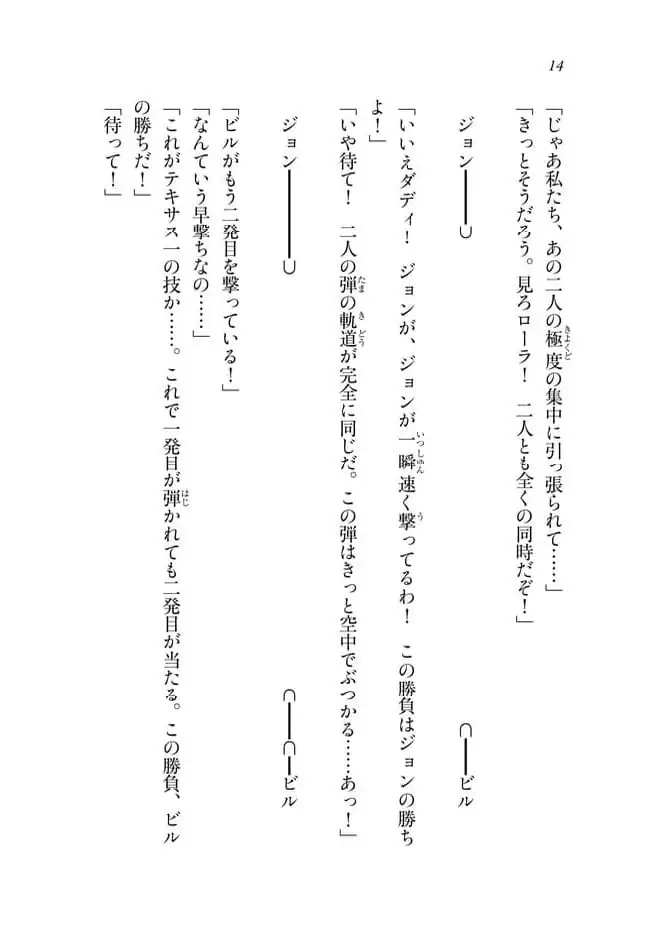 14
「じゃあ私たち、あの二人の極度の集中に引っ張られて……」
「きっとそうだろう。見ろローラ！　二人とも全くの同時だぞ！」
ジョン━━━⊃　　　　⊂━━ビル
「いいえダディ！　ジョンが、ジョンが一瞬速く撃ってるわ！　この勝負はジョンの勝ち
よ！」
「いや待て！　二人の弾の軌道が完全に同じだ。この弾はきっと空中でぶつかる……あっ！」
ジョン━━━━━⊃　　　　⊂━━⊂━ビル
「ビルがもう二発目を撃っている！」
「なんていう早撃ちなの……」
「これがテキサス一の技か……。これで一発目が弾かれても二発目が当たる。この勝負、ビル
の勝ちだ！」
「待って！」